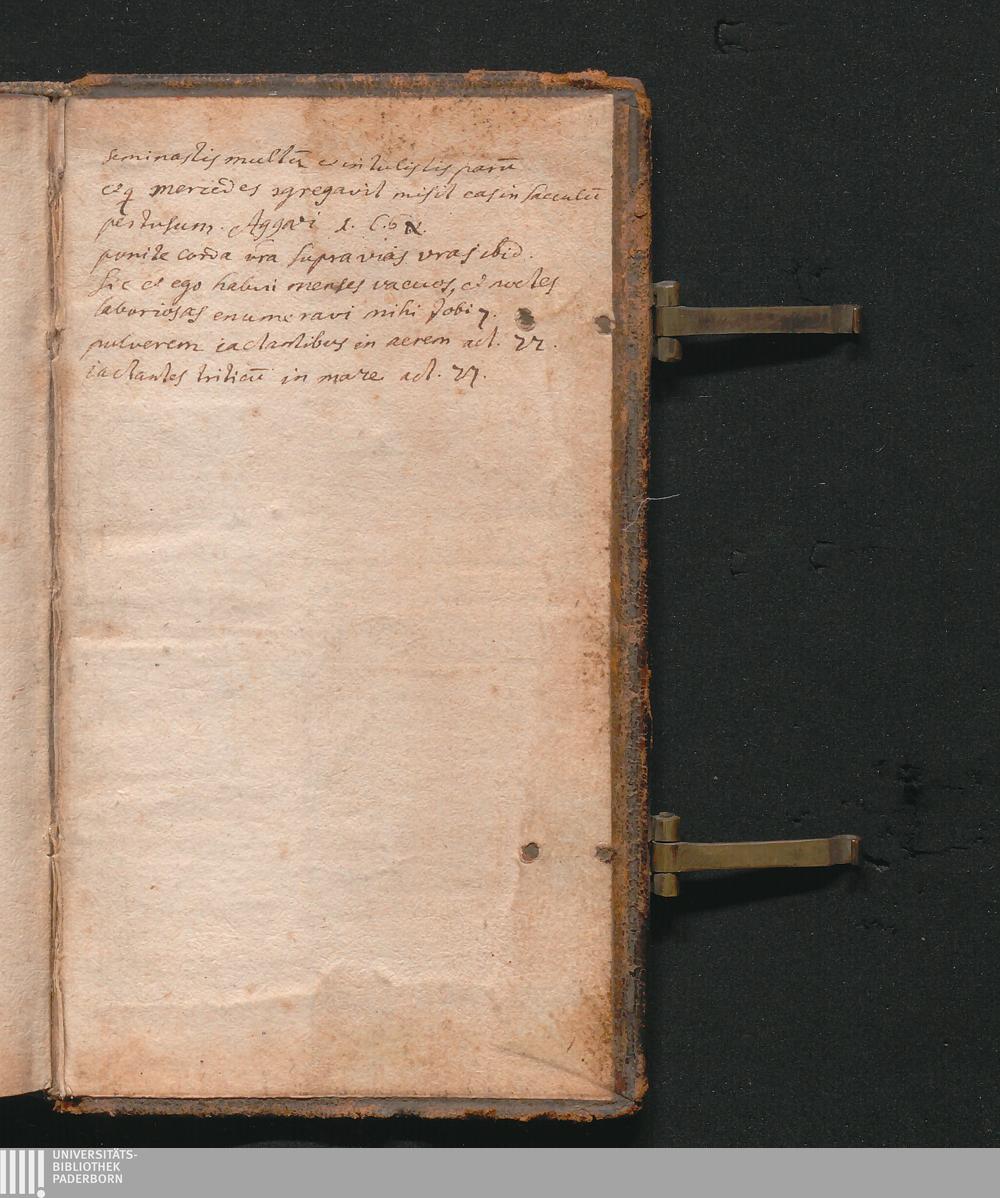 seminastis multū & intulistis parū
et q mercedes ɔgregavit misit eas in sacculū
pertusum. Aggæi 1. C. 6
ponite corda vr̄a supra vias vras ibid.
sic et ego habui menses vacuos, et noctes
laboriosas enumeravi mihi Jobi 7.
pulverem iactantibus in aerem act. 22.
iactantes triticū in mare act. 27.
UNIVERSITÄTS-
BIBLIOTHEK
PADERBORN